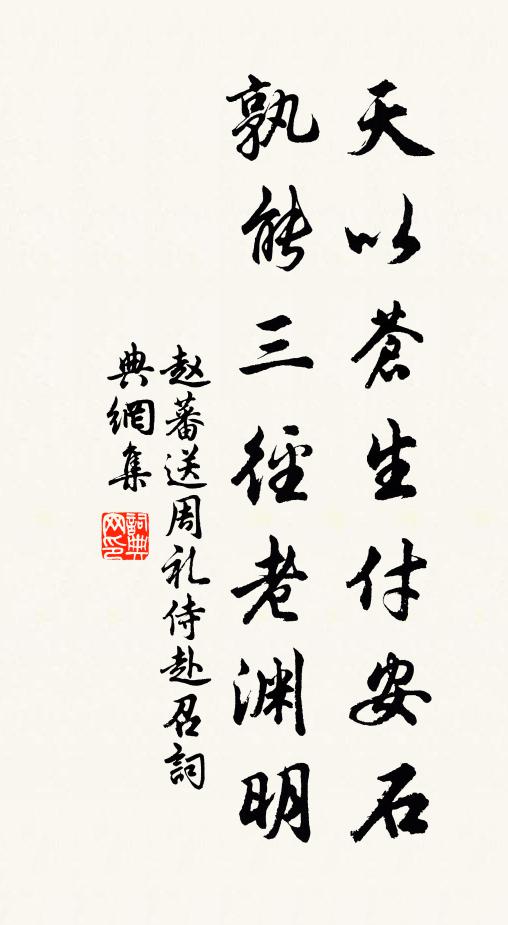 天以蒼生付安石
孰能三徑老渊明
赵蕃送周礼侍赴召詞
典網集
詞典网印